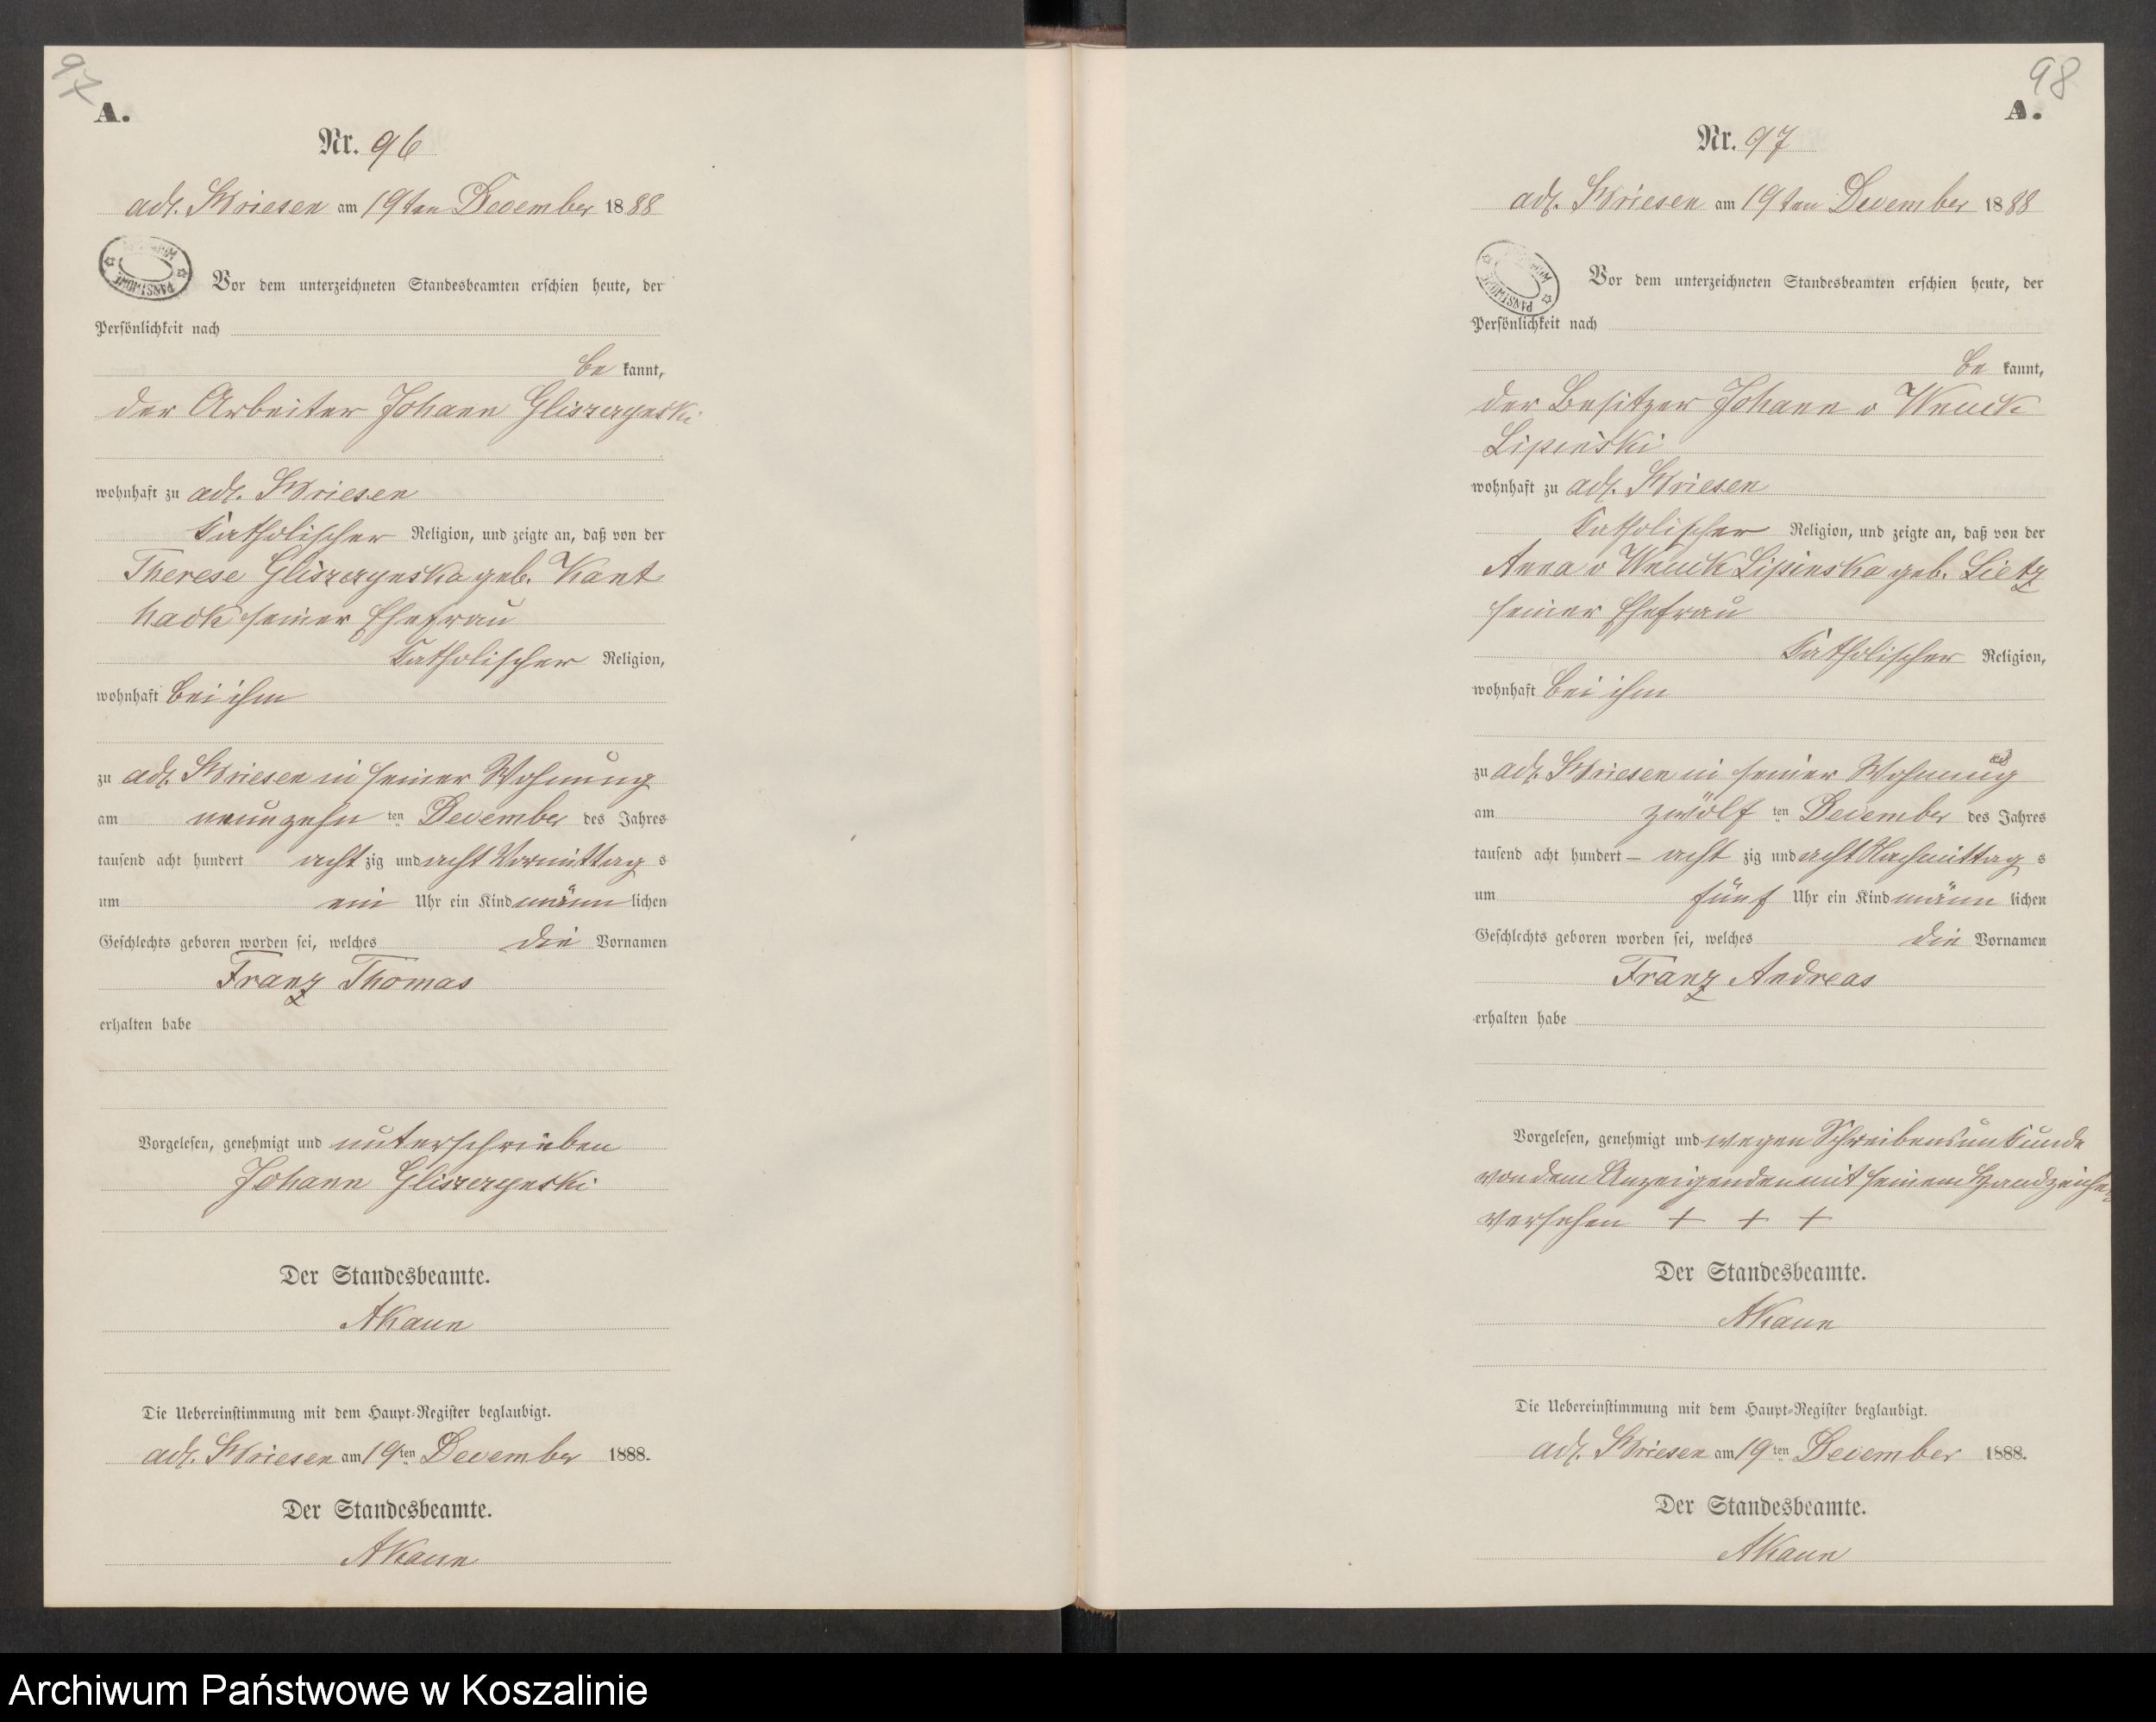 97
A.
Nr. 96
adl. Briesen am 19ten December 1888
Vor dem unterzeichneten Standesbeamten erschien heute, der
Persönlichkeit nach
be kannt,
der Arbeiter Johann Gliszczynski
wohnhaft zu adl. Briesen
katholischer Religion, und zeigte an, daß von der
Therese Gliszczynska geb. Kant
hack seiner Ehefrau
katholischer Religion,
wohnhaft bei ihm
zu adl. Briesen in seiner Wohnung
am neunzehn ten December des Jahres
tausend acht hundert acht zig und acht Vormittag s
um ein Uhr ein Kind männ lichen
Geschlechts geboren worden sei, welches die Vornamen
Franz Thomas
erhalten habe
Vorgelesen, genehmigt und unterschrieben
Johann Gliszczynski
Der Standesbeamte.
AKaun
Die Uebereinstimmung mit dem Haupt-Register beglaubigt.
adl. Briesen am 19ten December 1888.
Der Standesbeamte.
AKaun
98
A.
Nr. 97
adl. Briesen am 19ten December 1888
Vor dem unterzeichneten Standesbeamten erschien heute, der
Persönlichkeit nach
be kannt,
der Besitzer Johann v Wnuck
Lipinski
wohnhaft zu adl. Briesen
katholischer Religion, und zeigte an, daß von der
Anna v Wnuck Lipinska geb. Lietz
seiner Ehefrau
katholischer Religion,
wohnhaft bei ihm
zu adl. Briesen in seiner Wohnung
am zwölf ten December des Jahres
tausend acht hundert – acht zig und acht Nachmittag s
um fünf Uhr ein Kind männ lichen
Geschlechts geboren worden sei, welches die Vornamen
Franz Andreas
erhalten habe
Vorgelesen, genehmigt und wegen Schreibensunkunde
von dem Anzeigenden mit seinem Handzeichen
versehen + + +
Der Standesbeamte.
AKaun
Die Uebereinstimmung mit dem Haupt-Register beglaubigt.
adl. Briesen am 19ten December 1888.
Der Standesbeamte.
AKaun
Archiwum Państwowe w Koszalinie